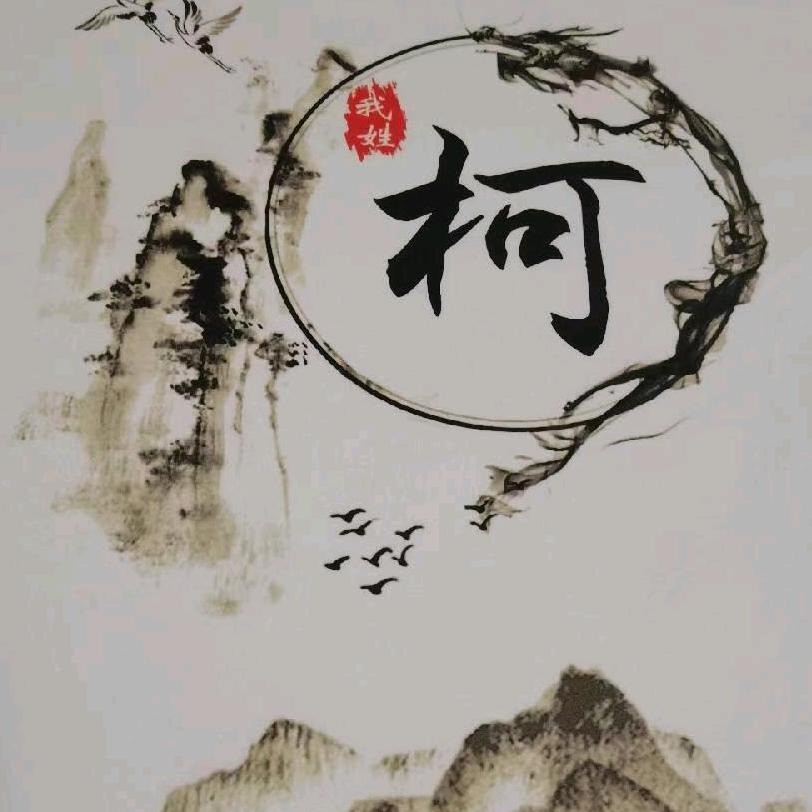 我
姓
柯